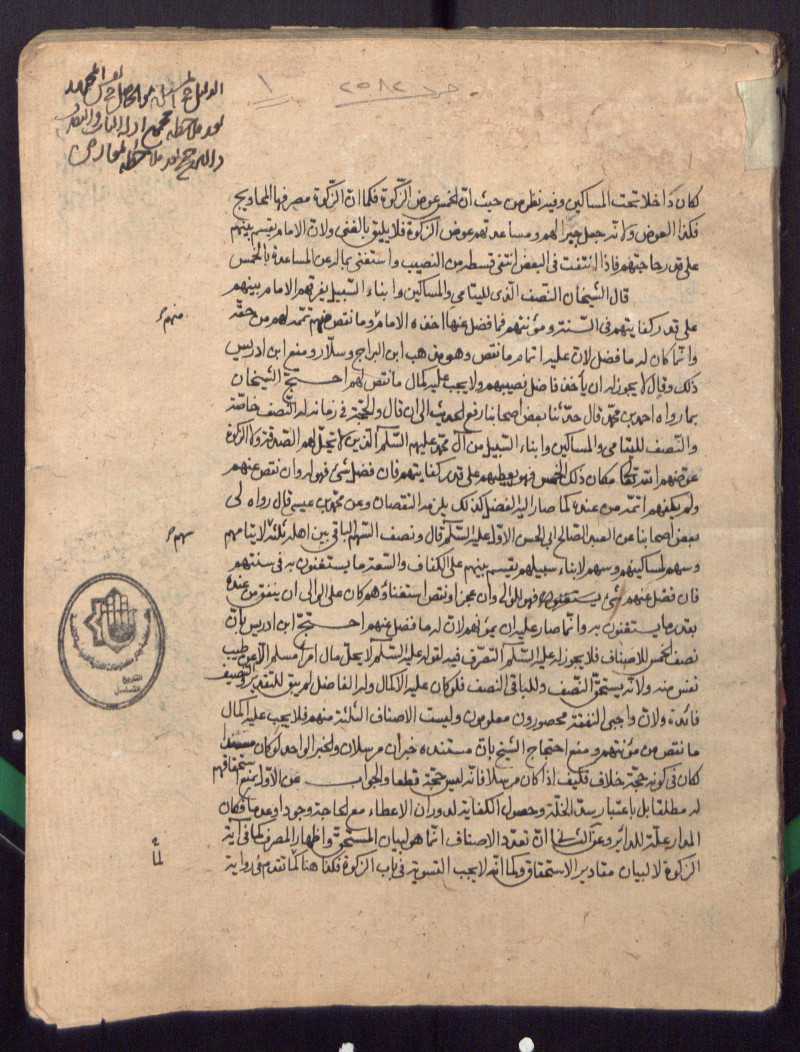 ١
حرد ٢٥٨٢
كان داخلا تحت المساكين وفيه نظر من حيث ان الخمس عوض الزكوة فكما ان الزكوة مصرفها المحاويج
فكذا العوض ولانه جعل جبرا لهم ومساعدتهم عوض الزكوة فلا يليق بالغنى ولان الامام يقسم بينهم
على قدر حاجتهم فاذا انتفت فى البعض انتفى قسطه من النصيب واستغنى بماله عن المساعدة بالخمس
قال الشيخان النصف الذى لليتامى والمساكين وابناء السبيل يفرقهم الامام بينهم
على قدر كفايتهم فى السنة ومؤنتهم فما فضل عنها اخذه الامام وما نقص منهم تممه لهم من حقه
وانما كان له ما فضل لان عليه اتمام ما نقص وهو مذهب ابن البراج وسلار ومنع ابن ادريس
ذلك وقال لا يجوز له ان ياخذ فاضل نصيبهم ولا يجب عليه اكمال ما نقص لهم احتج الشيخان
بما رواه احمد بن محمد قال حدثنا بعض اصحابنا رفع الحديث الى ان قال والحجة فى زمانه له النصف خاصة
والنصف لليتامى والمساكين وابناء السبيل من آل محمد عليهم السلم الذين لا تحل لهم الصدقة ولا الزكوة
عوضهم الله مكان ذلك الخمس فهو يعطيهم على قدر كفايتهم فان فضل شئ فهو له وان نقص عنهم
ولم يكفهم اتمه من عنده كما صار اليه الفضل كذلك يلزمه النقصان وعن محمد بن عيسى قال رواه لى
بعض اصحابنا عن العبد الصالح ابى الحسن الاول عليه السلم قال ونصف السهم الباقى بين اهله ثلثة لايتامهم
وسهم لمساكينهم وسهم لابناء سبيلهم يقسم بينهم على الكفاف والسعة ما يستغنون به فى سنتهم
فان فضل عنهم شئ يستغنون فهو للوالى وان عجز او نقص استغناؤهم كان على الوالى ان ينفق من عنده
بقدر ما يستغنون به وانما صار عليه ان يمونهم لان له ما فضل عنهم احتج ابن ادريس بان
نصف الخمس للاصناف فلا يجوز له عليه السلم التصرف فيه لقوله عليه السلم لا يحل مال امرئ مسلم الا عن طيب
نفس منه ولانه يستحق النصف وللباقى النصف فلو كان عليه الاكمال وله الفاضل لم يبق للتقدير والتنصيف
فائدة ولان واجبى النفقة محصورون معلومون وليست الاصناف الثلثة منهم فلا يجب عليه اكمال
ما نقص من مؤنتهم ومنع احتجاج الشيخ بان مستنده خبران مرسلان والخبر الواحد لو كان مسندا
لكان فى كونه حجة خلاف فكيف اذا كان مرسلا فانه ليس حجة قطعا والجواب عن الاول بمنع استحقاقهم
له مطلقا بل باعتبار سد الخلة وحصول الكفاية لدوران الاعطاء مع الحاجة وجودا وعدما فكان
المدار علة للدائر وعن الثانى ان تعدد الاصناف انما هو لبيان المستحق واظهار المصرف كما فى آية
الزكوة لا لبيان مقادير الاستحقاق وكما انه لا يجب التسوية فى باب الزكوة فكذا هنا لما تقدم فى رواية
منهم
سهم
لما